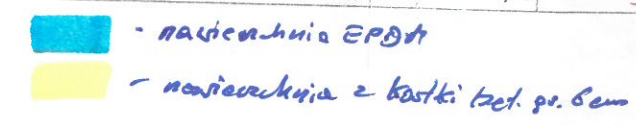 - nawierzchnia EPDM
- nawierzchnia z kostki bet. gr. 6 cm